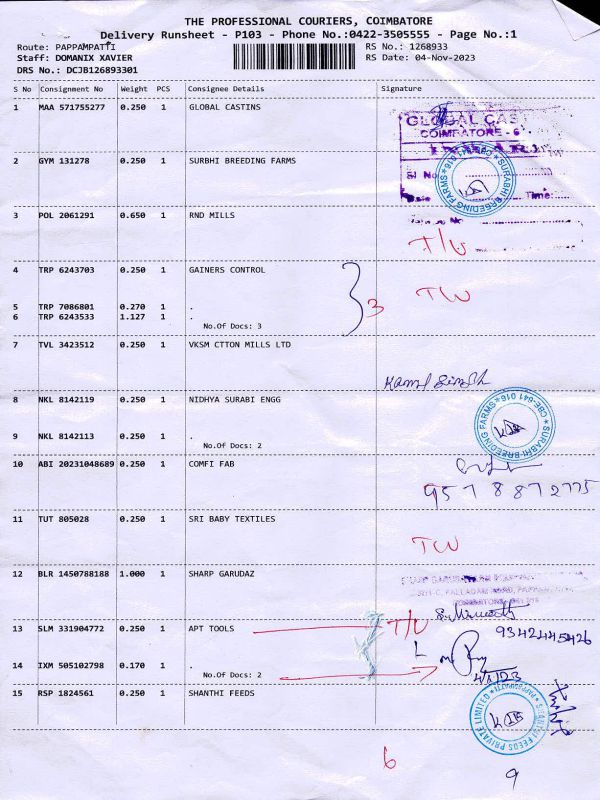 THE PROFESSIONAL COURIERS, COIMBATORE
Delivery Runsheet - P103 - Phone No.:0422-3505555 - Page No.:1
Route: PAPPAMPATTI RS No.: 1268933
Staff: DOMANIX XAVIER RS Date: 04-Nov-2023
DRS No.: DCJB126893301
S No Consignment No Weight PCS Consignee Details Signature
1 MAA 571755277 0.250 1 GLOBAL CASTINS
GLOBAL CAST
COIMBATORE - 6
2 GYM 131278 0.250 1 SURBHI BREEDING FARMS
SURABHI BREEDING FARMS
Sl No
Date Time
3 POL 2061291 0.650 1 RND MILLS
T/U
4 TRP 6243703 0.250 1 GAINERS CONTROL
TW
5 TRP 7086801 0.270 1 .
3
6 TRP 6243533 1.127 1 .
No.Of Docs: 3
7 TVL 3423512 0.250 1 VKSM CTTON MILLS LTD
8 NKL 8142119 0.250 1 NIDHYA SURABI ENGG
SURABHI BREEDING FARMS * CBE-641 016 *
9 NKL 8142113 0.250 1 .
No.Of Docs: 2
10 ABI 20231048689 0.250 1 COMFI FAB
9578872775
11 TUT 805028 0.250 1 SRI BABY TEXTILES
TW
12 BLR 1450788188 1.000 1 SHARP GARUDAZ
13 SLM 331904772 0.250 1 APT TOOLS
T/U
9342445426
14 IXM 505102798 0.170 1 .
No.Of Docs: 2
4/11/23
15 RSP 1824561 0.250 1 SHANTHI FEEDS
SHANTHI FEEDS PRIVATE LIMITED * PAPPAMPATTI *
6
9